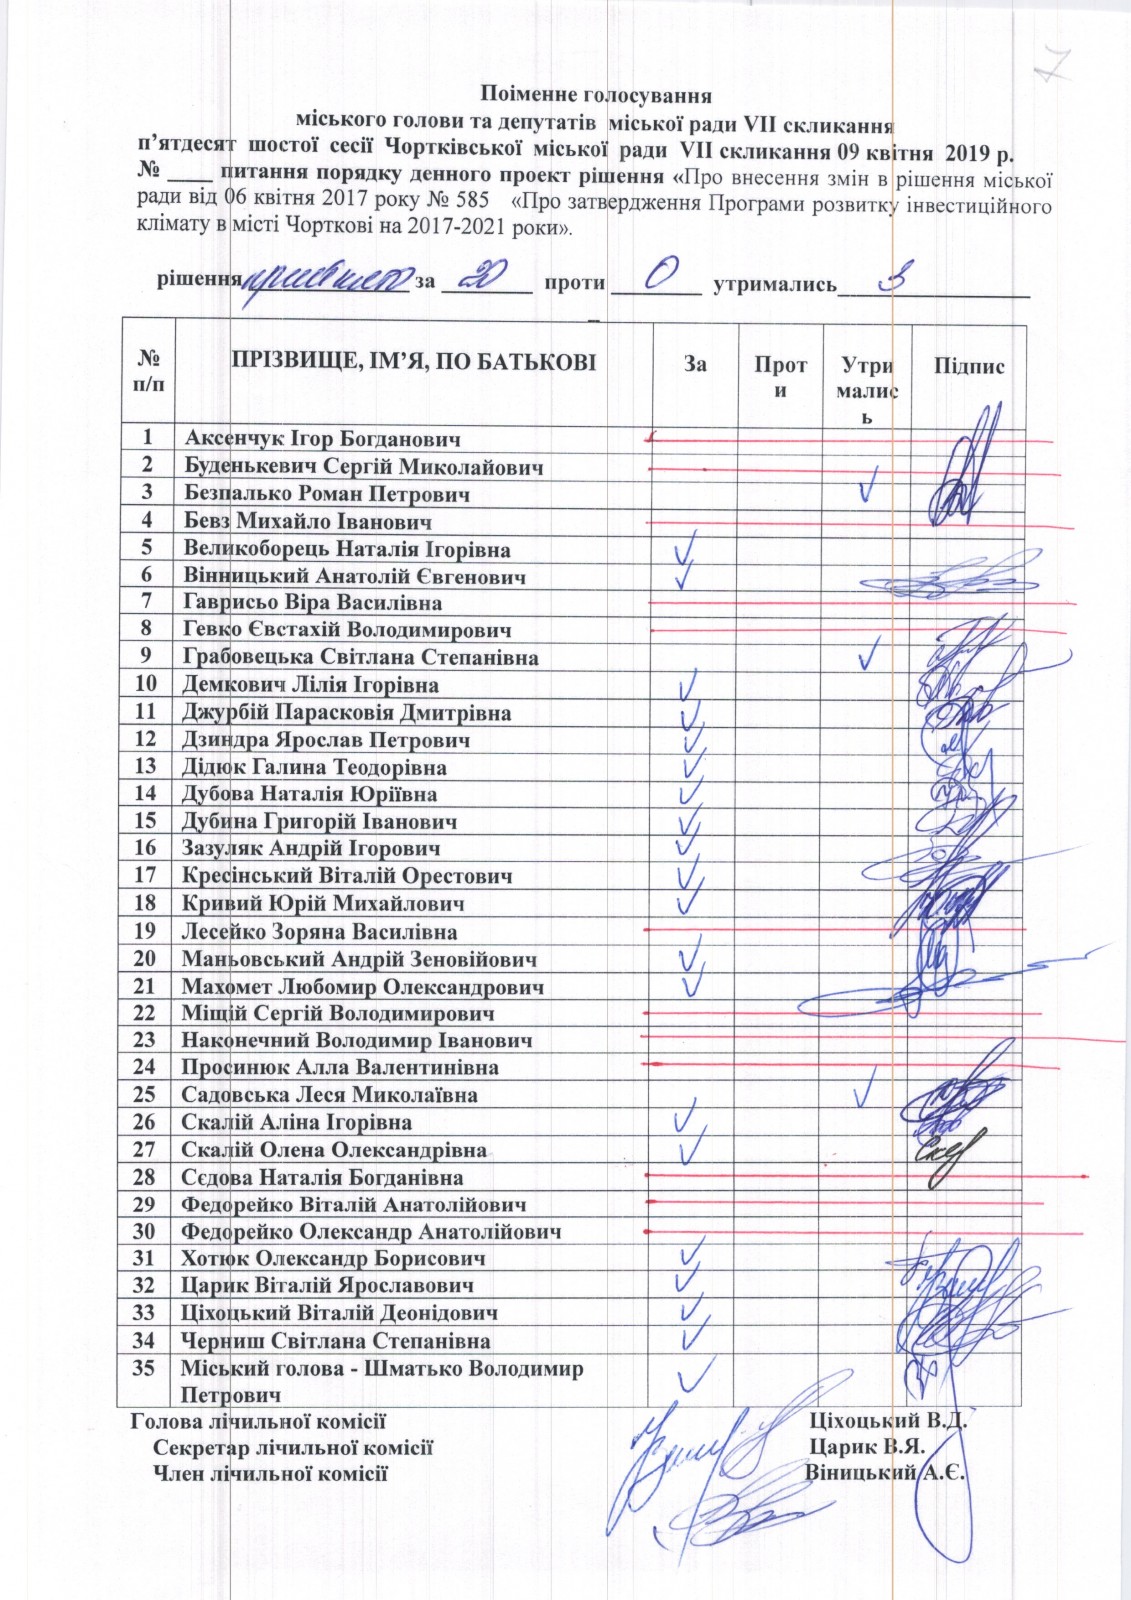 7
Поіменне голосування
міського голови та депутатів міської ради VII скликання
п’ятдесят шостої сесії Чортківської міської ради VII скликання 09 квітня 2019 р.
№ ____ питання порядку денного проект рішення «Про внесення змін в рішення міської
ради від 06 квітня 2017 року № 585 «Про затвердження Програми розвитку інвестиційного
клімату в місті Чорткові на 2017-2021 роки».
рішення прийнято за 20 проти 0 утримались 3
№ п/п ПРІЗВИЩЕ, ІМ’Я, ПО БАТЬКОВІ За Прот и Утри малис ь Підпис
1 Аксенчук Ігор Богданович
2 Буденькевич Сергій Миколайович
3 Безпалько Роман Петрович
4 Бевз Михайло Іванович
5 Великоборець Наталія Ігорівна
6 Вінницький Анатолій Євгенович
7 Гаврисьо Віра Василівна
8 Гевко Євстахій Володимирович
9 Грабовецька Світлана Степанівна
10 Демкович Лілія Ігорівна
11 Джурбій Парасковія Дмитрівна
12 Дзиндра Ярослав Петрович
13 Дідюк Галина Теодорівна
14 Дубова Наталія Юріївна
15 Дубина Григорій Іванович
16 Зазуляк Андрій Ігорович
17 Кресінський Віталій Орестович
18 Кривий Юрій Михайлович
19 Лесейко Зоряна Василівна
20 Маньовський Андрій Зеновійович
21 Махомет Любомир Олександрович
22 Міщій Сергій Володимирович
23 Наконечний Володимир Іванович
24 Просинюк Алла Валентинівна
25 Садовська Леся Миколаївна
26 Скалій Аліна Ігорівна
27 Скалій Олена Олександрівна
28 Сєдова Наталія Богданівна
29 Федорейко Віталій Анатолійович
30 Федорейко Олександр Анатолійович
31 Хотюк Олександр Борисович
32 Царик Віталій Ярославович
33 Ціхоцький Віталій Деонідович
34 Черниш Світлана Степанівна
35 Міський голова - Шматько Володимир
Петрович
Голова лічильної комісії Ціхоцький В.Д.
Секретар лічильної комісії Царик В.Я.
Член лічильної комісії Віницький А.Є.